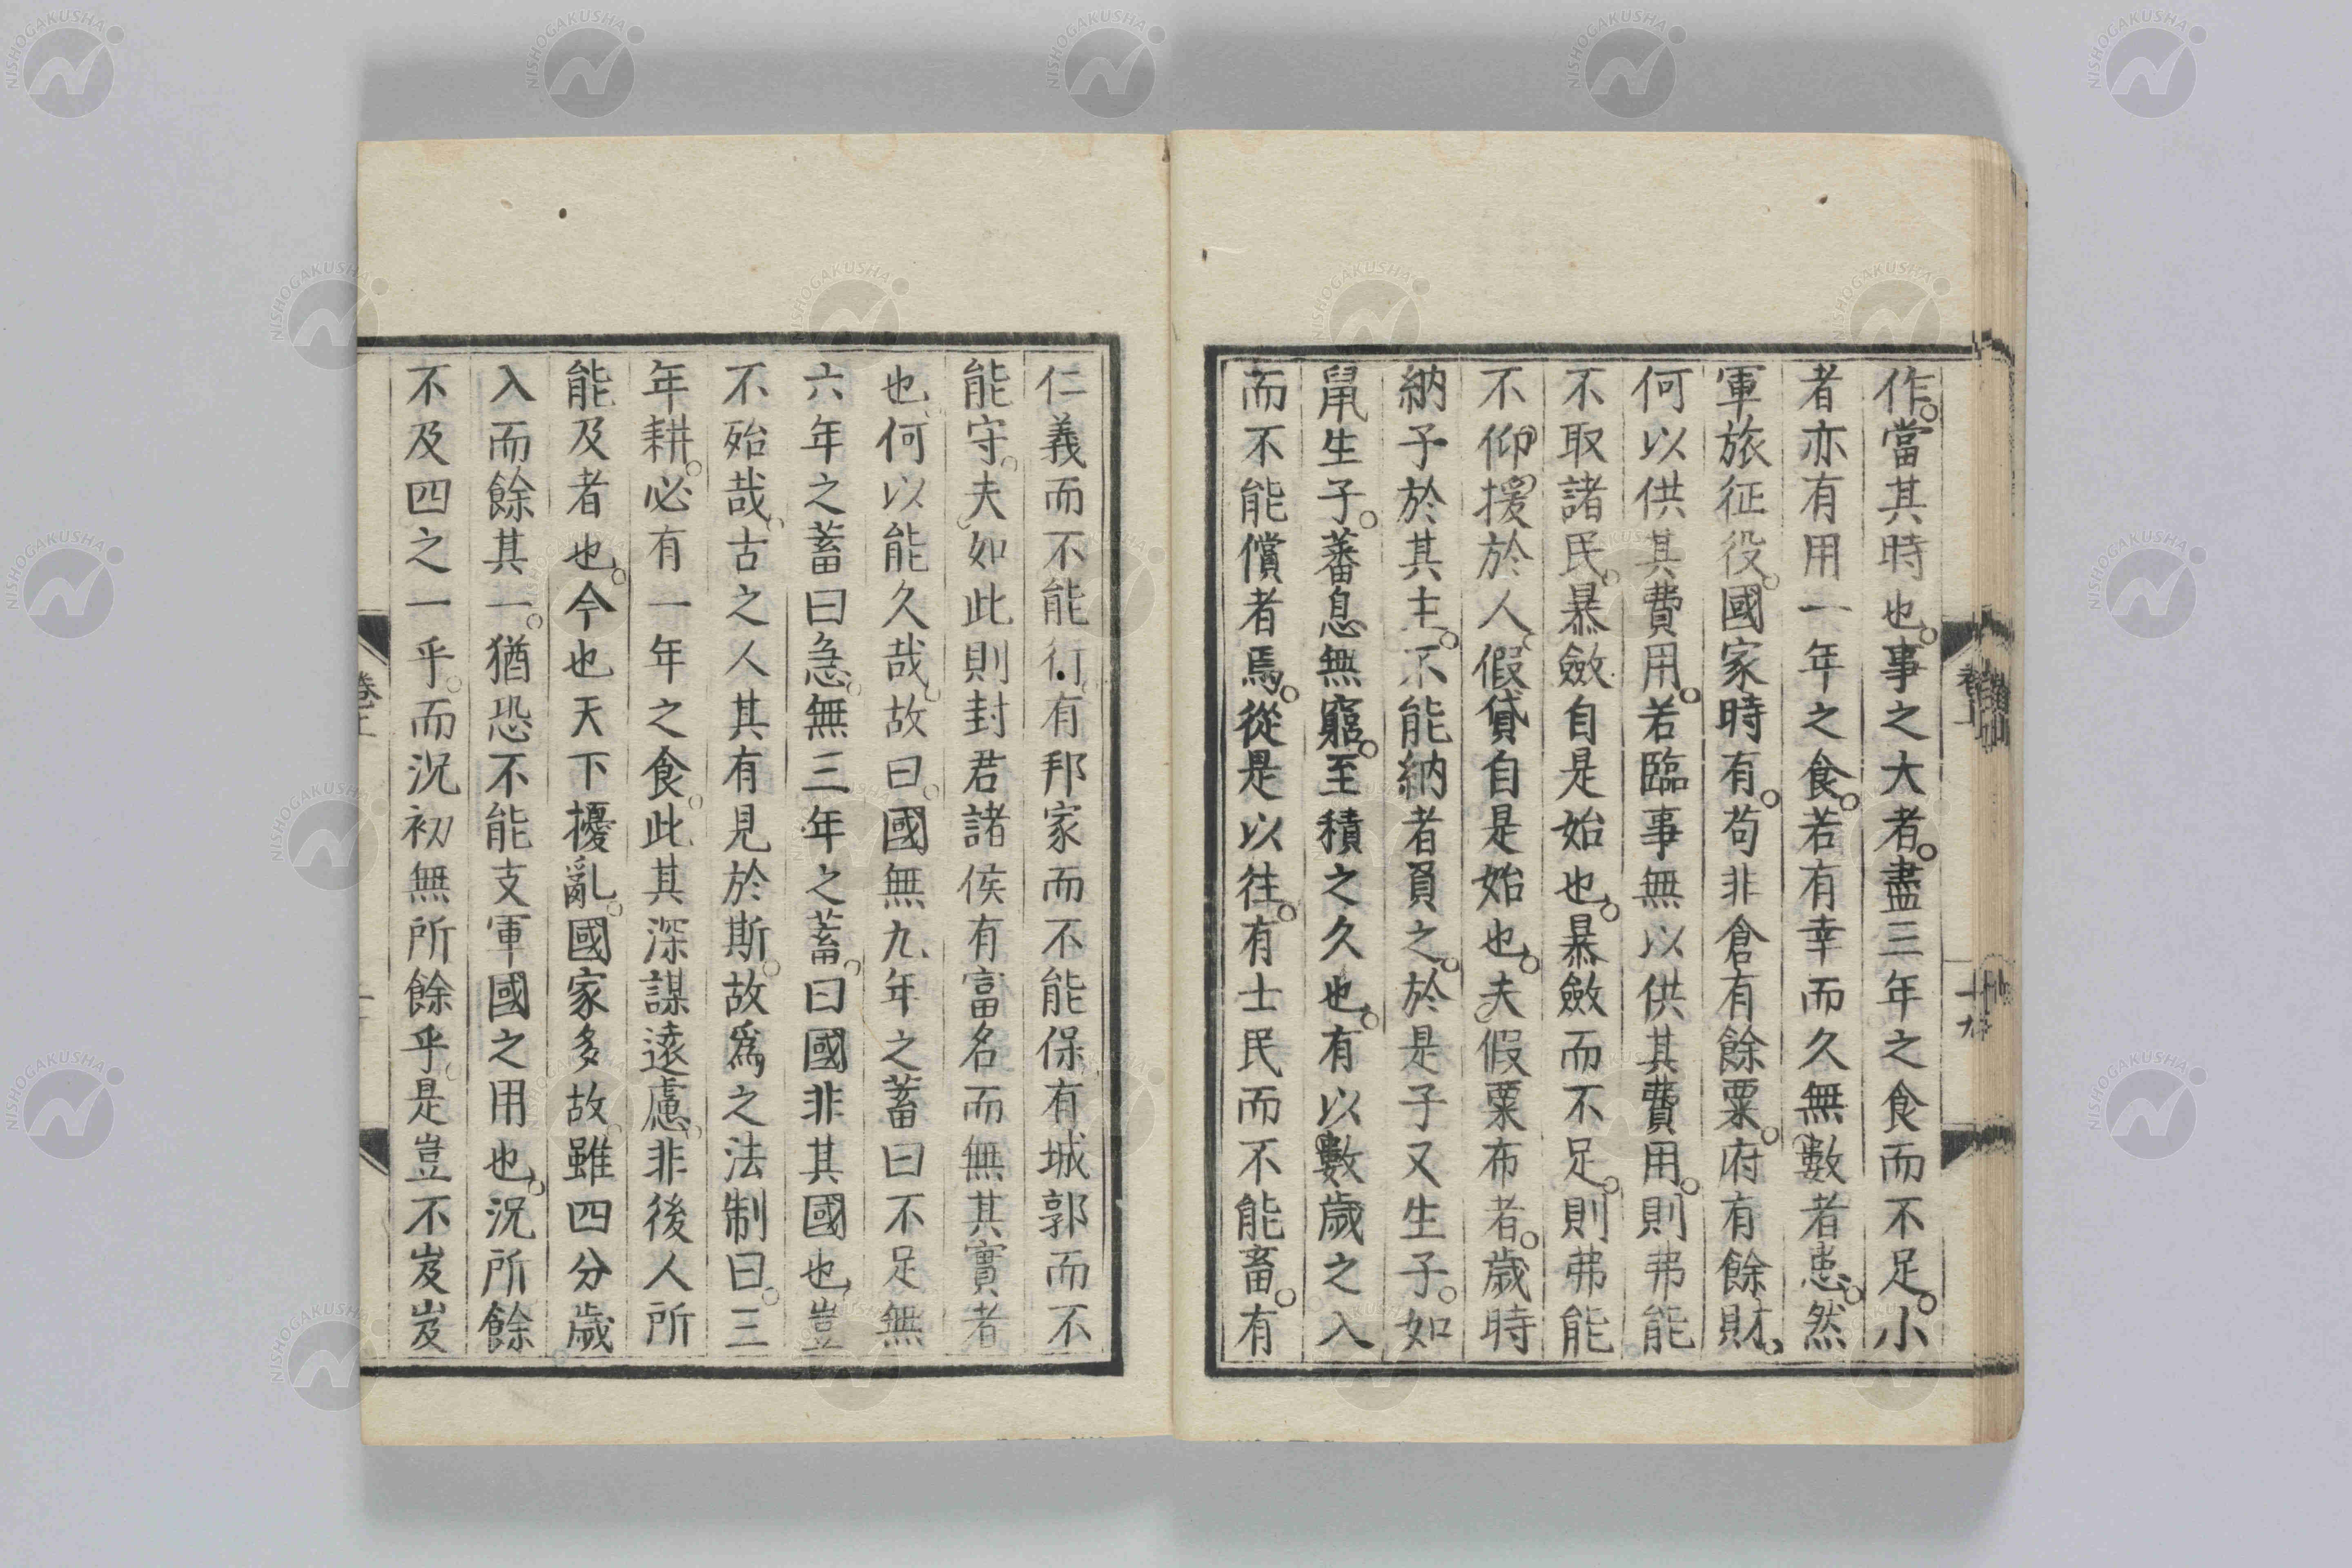 作。當其時也。事之大者。盡三年之食而不足。小
者亦有用一年之食。若有幸而久無數者患。然
軍旅征役。國家時有。苟非倉有餘粟。府有餘財、
何以供其費用。若臨事無以供其費用。則弗能
不取諸民。暴斂自是始也。暴斂而不足。則弗能
不仰援於人。假貸自是始也。夫假粟布者。歲時
納子於其主。不能納者負之。於是子又生子。如
鼠生子。蕃息無窮。至積之久也。有以數歲之入
而不能償者焉。從是以往。有士民而不能畜。有
仁義而不能行。有邦家而不能保。有城郭而不
能守。夫如此則封君諸侯有富名而無其實者
也。何以能久哉。故曰。國無九年之蓄曰不足無
六年之蓄曰急。無三年之蓄。曰國非其國也。豈
不殆哉。古之人其有見於斯。故爲之法制曰。三
年耕。必有一年之食。此其深謀遠慮。非後人所
能及者也。今也天下擾亂。國家多故。雖四分歲
入而餘其一。猶恐不能支軍國之用也。況所餘
不及四之一乎。而況初無所餘乎。是豈不岌岌
NISHOGAKUSHA